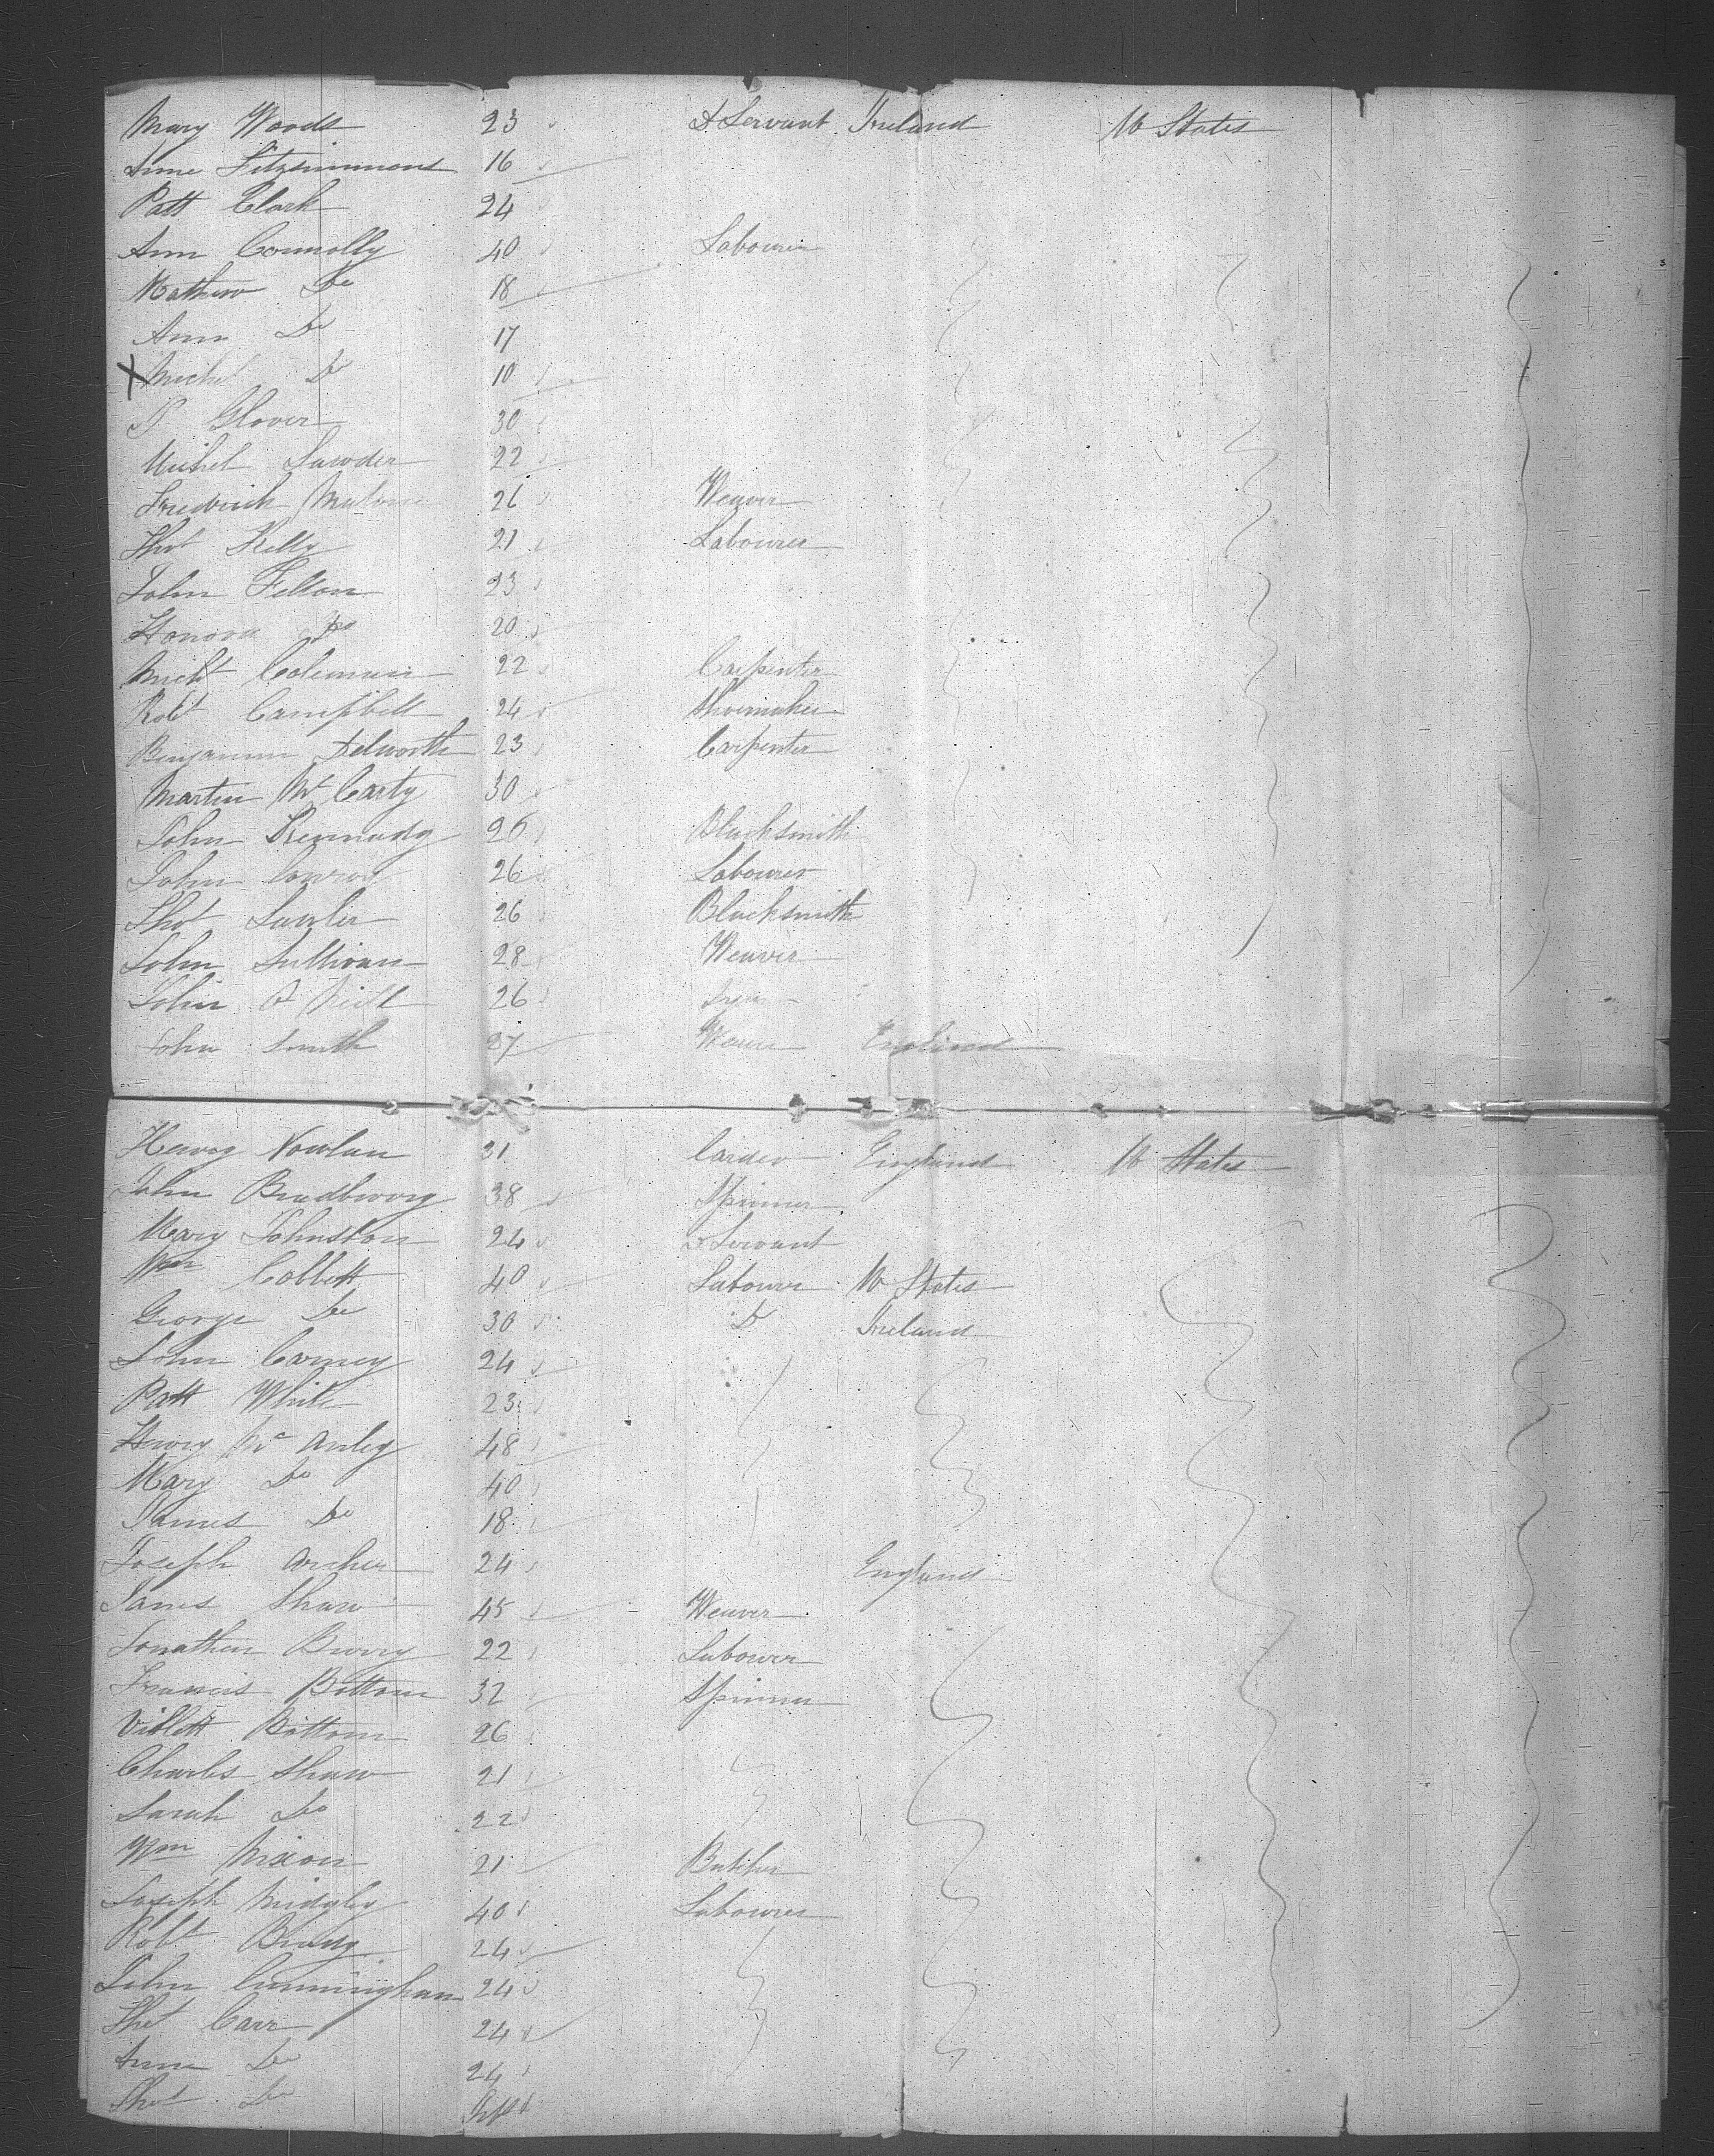 Mary Woods 23 F. Servant Ireland U States
Anne Fitzsimmons 16
Patt Clark 24
Ann Connolly 40 Labourer
Mathew Do 18
Ann Do 17
X Michel Do 10
P Glover 30
Michel Lawder 22
Fredrick Malone 26 Weaver
Thos Kelly 21 Labourer
John Felton 23
Honora Do 20
Michl Coleman 22 Carpenter
Robt Campbell 24 Shoemaker
Benjamin Delworth 23 Carpenter
Martin McCarty 30
John Kennady 26 Blacksmith
John Conroy 26 Labourer
Thos Lawler 26 Blacksmith
John Sullivan 28 Weaver
John O Niell 26
John Smith 27 Weaver England
Henry Nowlan 31 Carder England U States
John Bradbury 38 Spinner
Mary Johnston 24 F Servant
Wm Cobbett 40 Labourer U States
George Do 30 Do Ireland
John Carney 24
Patt White 23
Henry Mc Auley 48
Mary Do 40
James Do 18
Joseph Archer 24 England
James Shaw 45 Weaver
Jonathan Berry 22 Labourer
Francis Bottom 32 Spinner
Violett Bottom 26
Charles Shaw 21
Sarah Do 22
Wm Nixon 21 Butcher
Joseph Midgley 40 Labourer
Robt Brady 24
John Cunningham 24
Thos Carr 24
Anne Do 24
Thos Do Inft